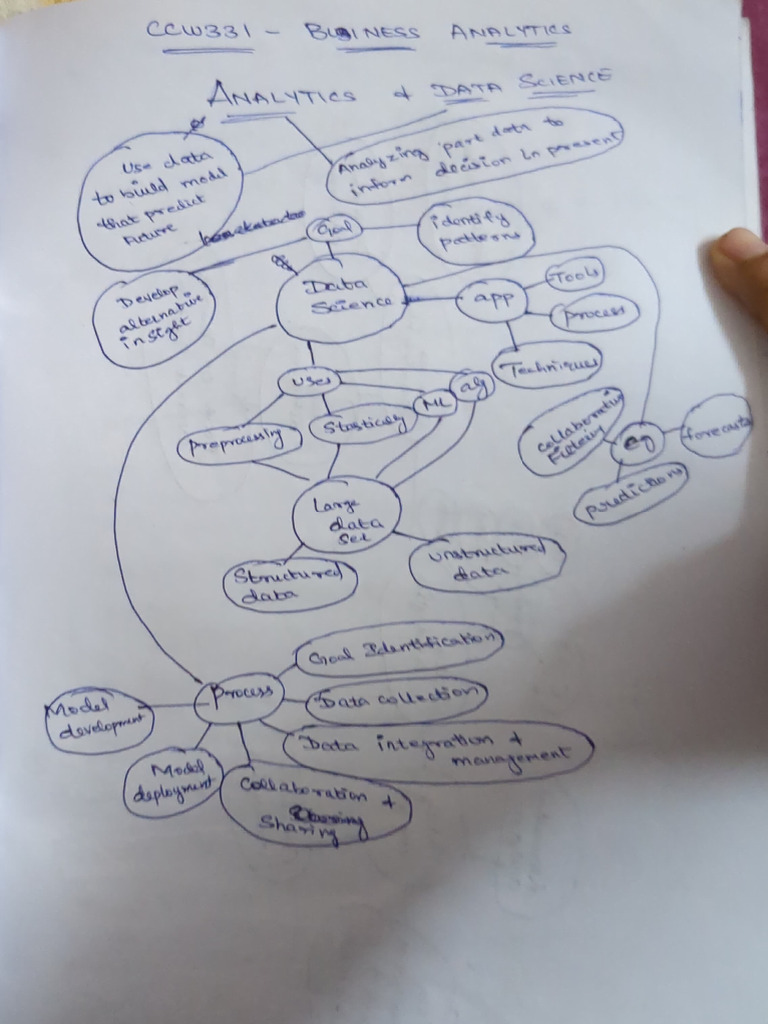 CCW331 - BUSINESS ANALYTICS
ANALYTICS & DATA SCIENCE
Use data
to build model
that predict
Future
Analyzing part data to
inform decision in present
Goal
identify
patterns
Develop
alternative
insight
Data
Science
app
Tools
process
Techniques
uses
Preprocessing
Stastically
ML
alg
Collaborative
eg
forecasts
predictions
Large
data
set
Structured
data
unstructured
data
Process
Goal Identification
Data collection
Data integration &
management
Collaboration &
Sharing
Model
deployment
Model
development